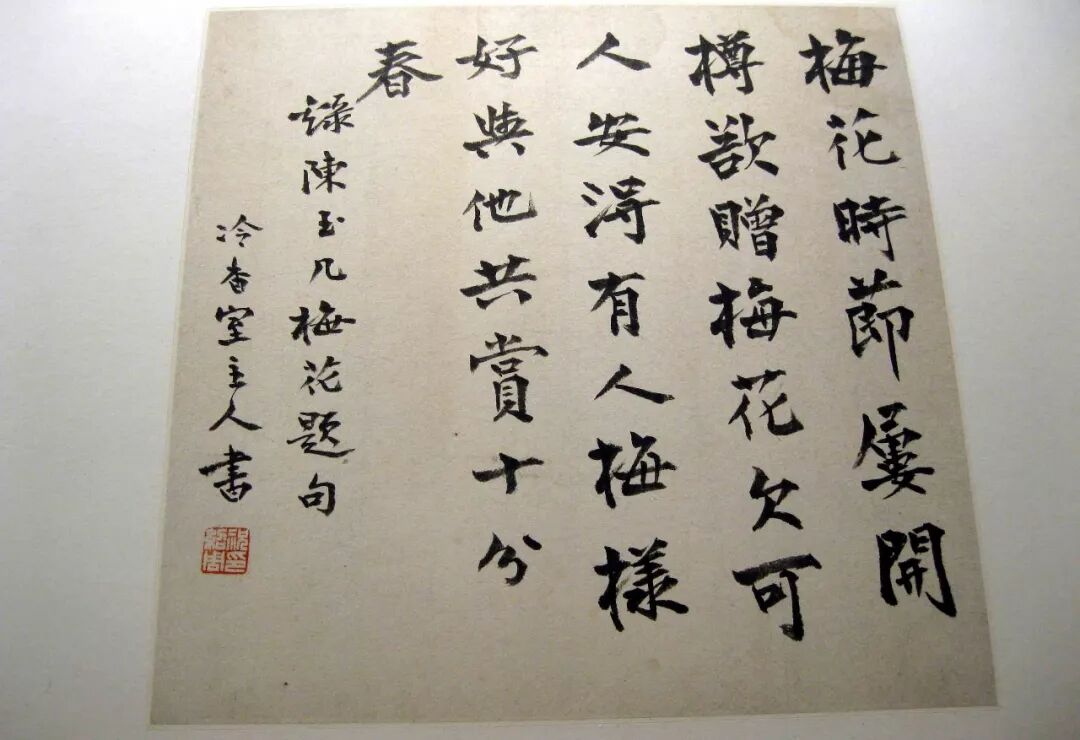 梅花時節屢開
樽欲贈梅花欠可
人安得有人梅樣
好與他共賞十分
春
錄陳玉几梅花題句
冷香室主人書